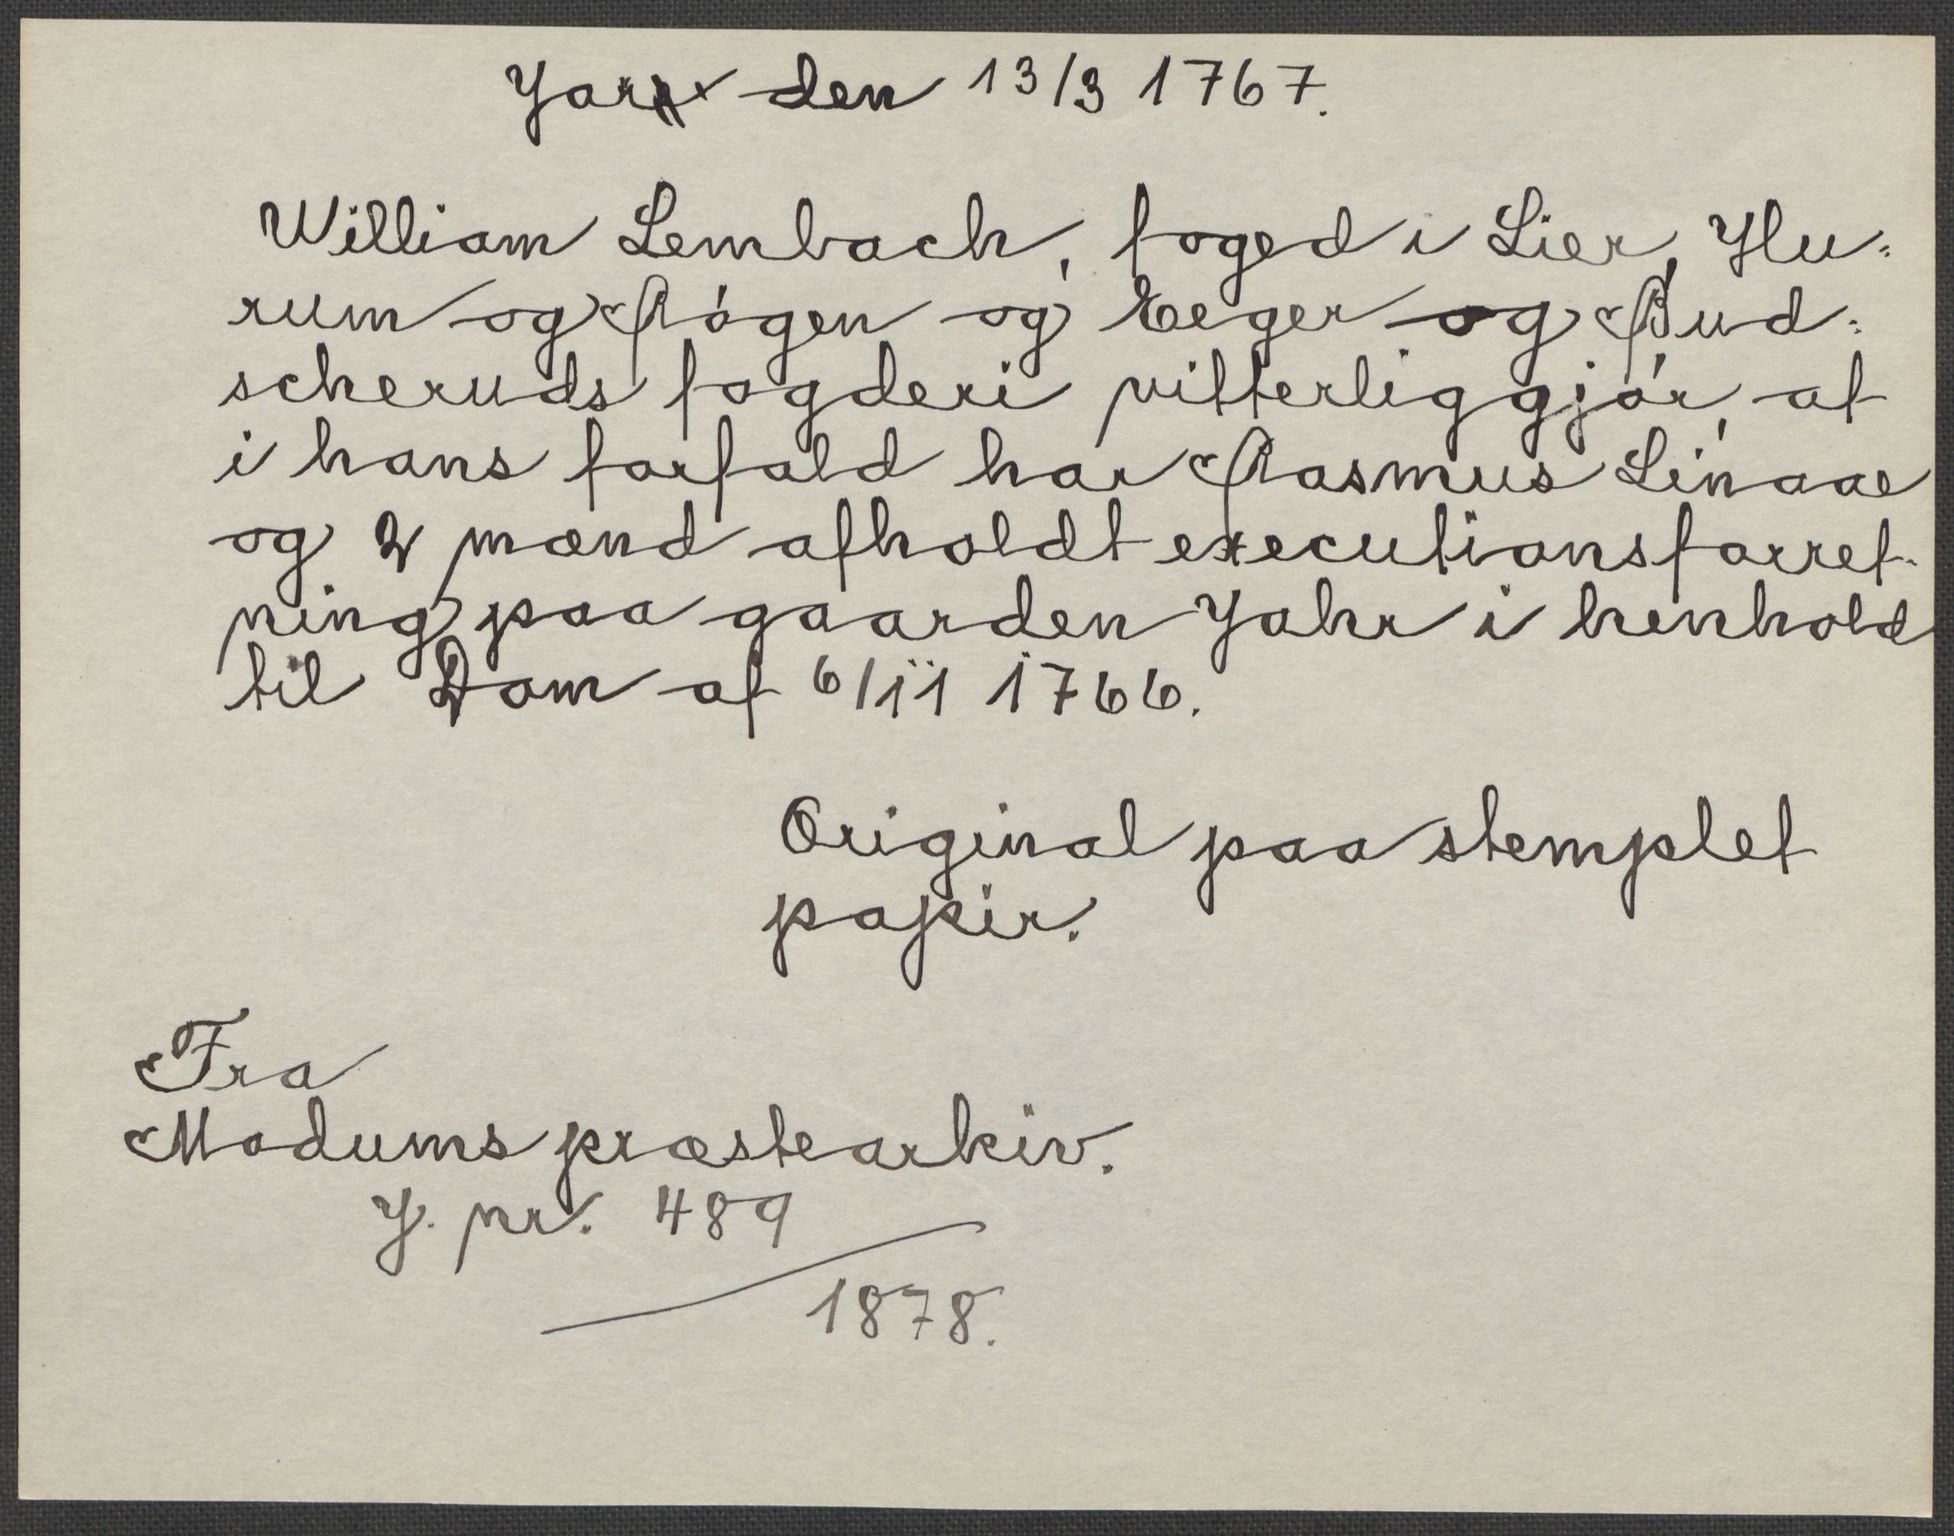 Jar den 13/3 1767.
William Lembach, foged i Lier, Hu-
rum og Røgen og Eeger og Bud-
scheruds fogderi vitterliggjør, at
i hans forfald har Rasmus Linaae
og 2 mænd afholdt executionsforret-
ning paa gaarden Jahr i henhold
til Dom af 6/11 1766.
Original paa stemplet
papir.
Fra
Modums præstearkiv.
J. nr. 489
1878.